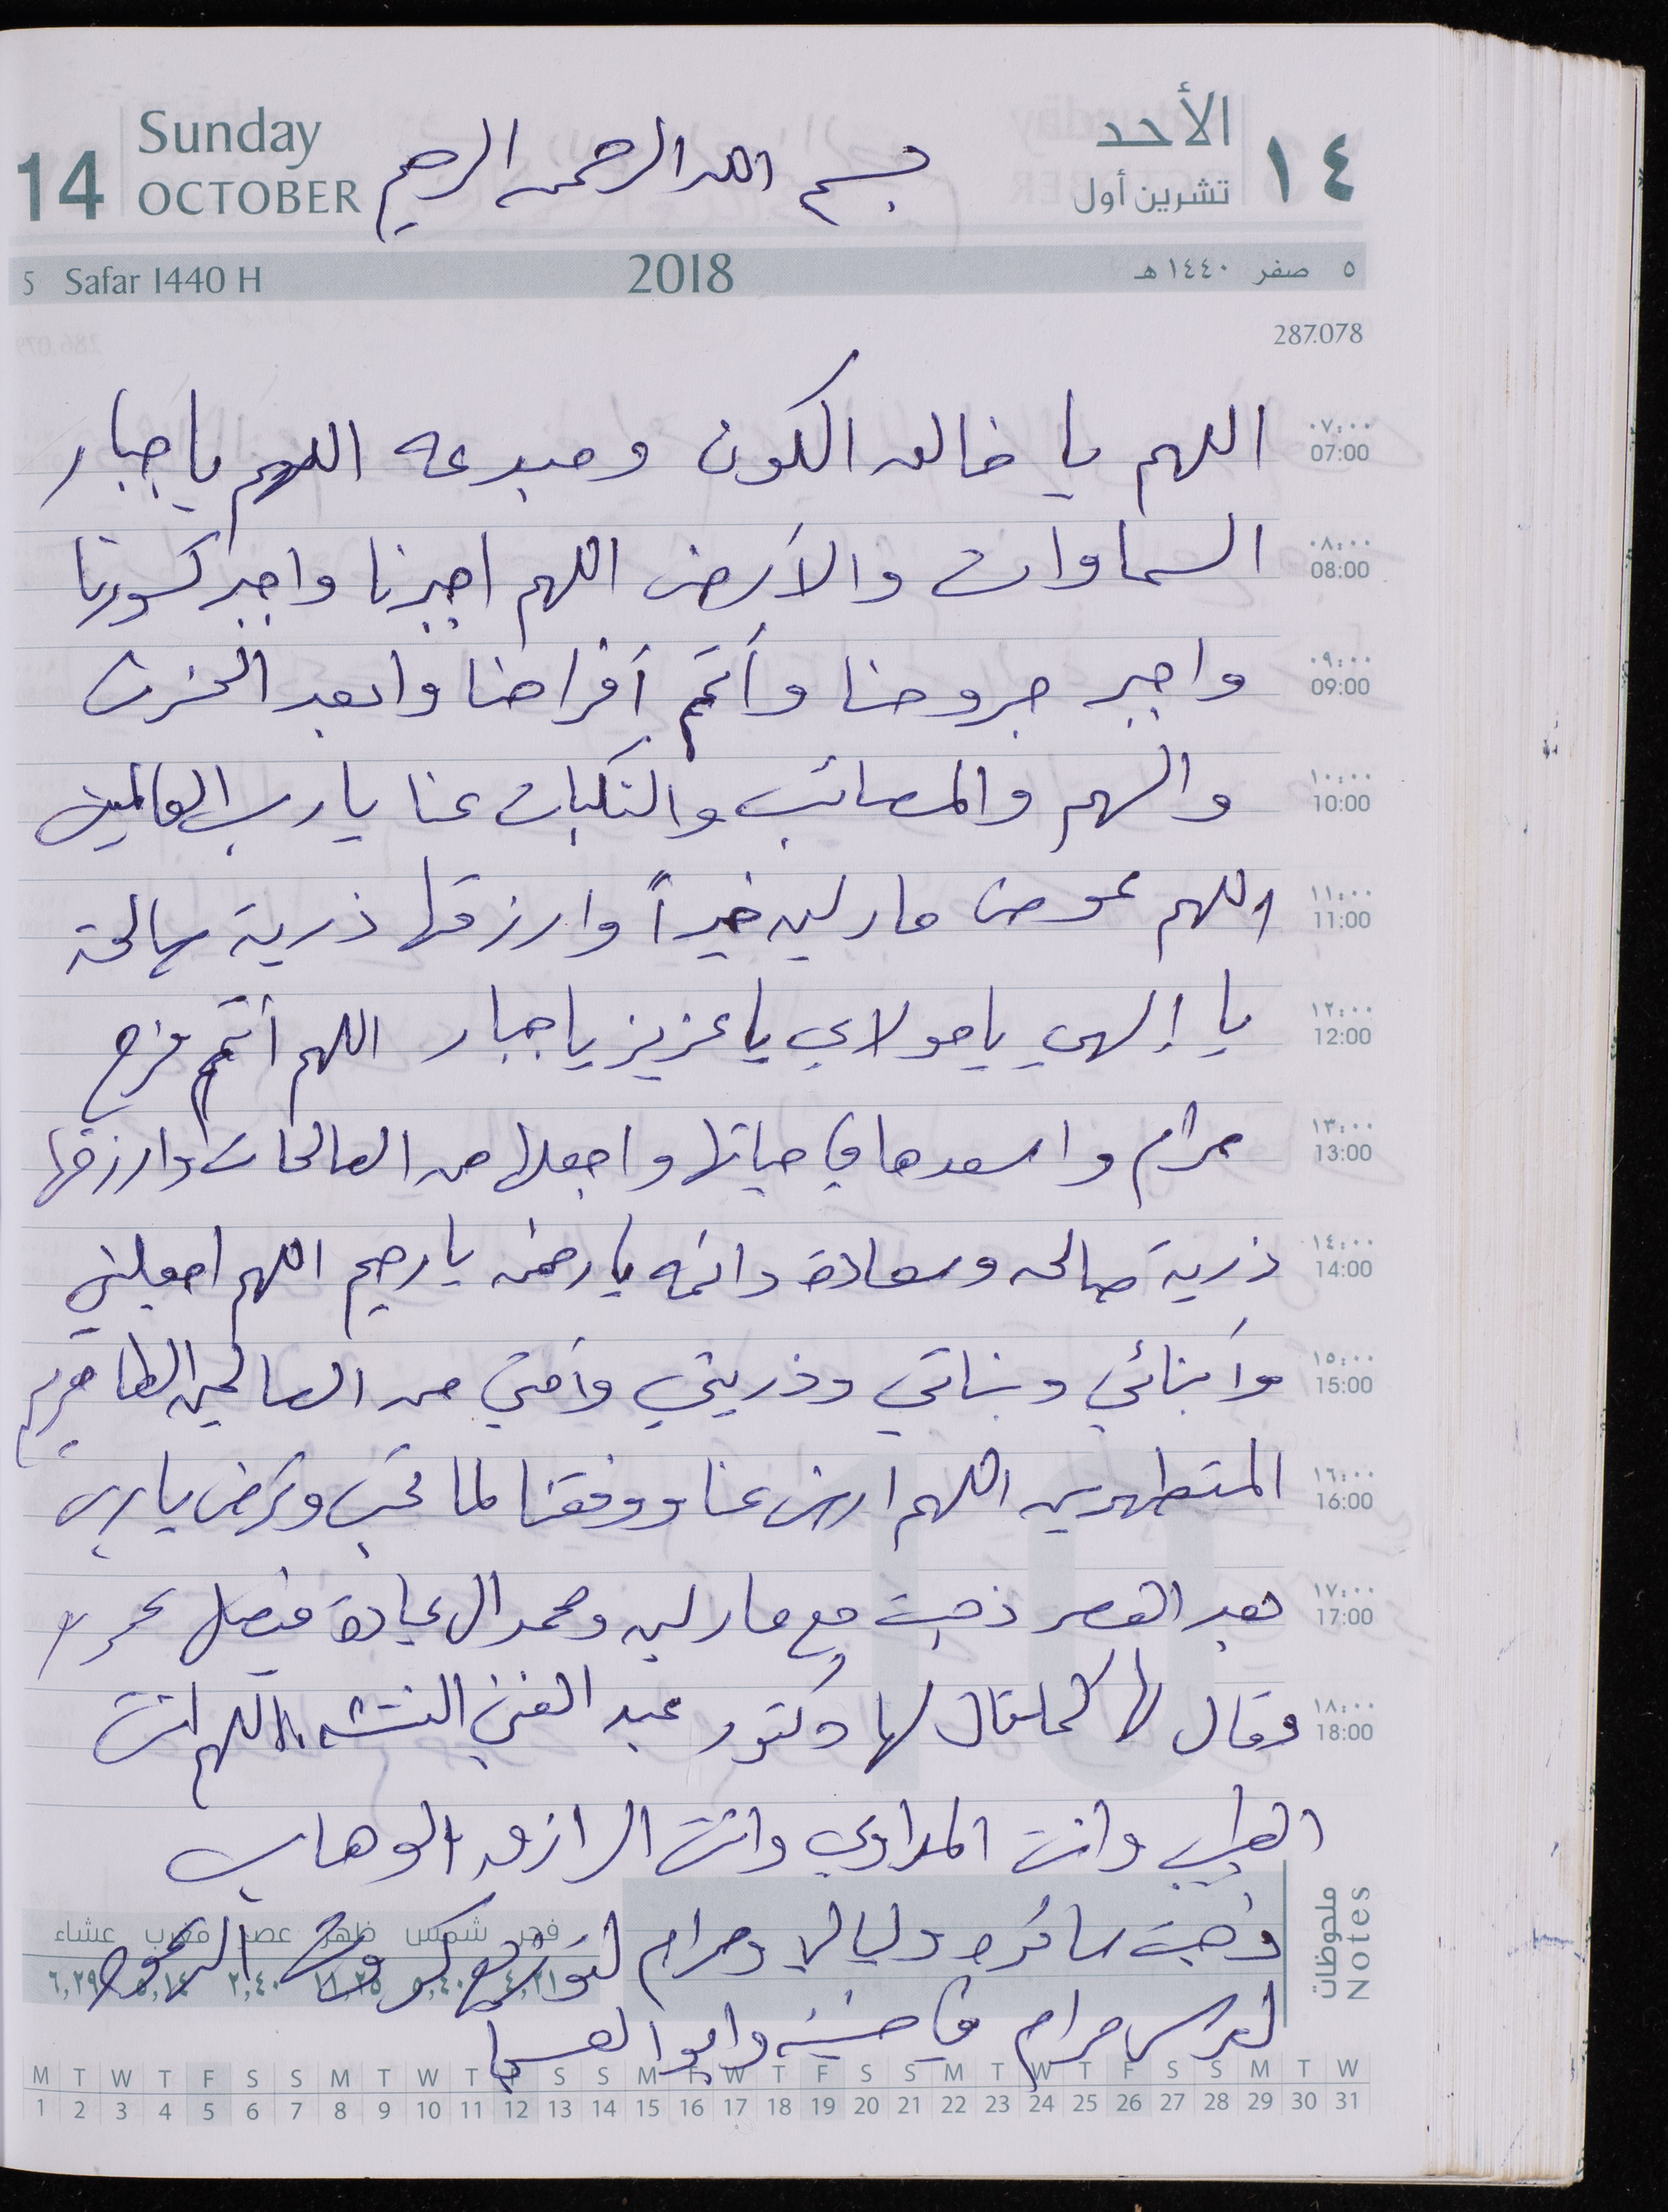 14 Sunday OCTOBER
الأحد ١٤ تشرين أول
بسم الله الرحمن الرحيم
5 Safar 1440 H 2018 ٥ صفر ١٤٤٠ هـ
287.078
٠٧:٠٠ 07:00 اللهم يا خالق الكون ومبدعه اللهم يا جبار
٠٨:٠٠ 08:00 السماوات والأرض اللهم اجبرنا واجبر كسورنا
٠٩:٠٠ 09:00 واجبر جروحنا وأتم أفراحنا وابعد الحزن
١٠:٠٠ 10:00 والهم والمصائب والنكبات عنا يا رب العالمين
١١:٠٠ 11:00 اللهم عوض مارلين خيراً وارزقها ذرية صالحة
١٢:٠٠ 12:00 يا إلهي يا مولاي يا عزيز يا جبار اللهم أتم فرح
١٣:٠٠ 13:00 مرام واسعدها في حياتها واجعلها من الصالحات وارزقها
١٤:٠٠ 14:00 ذرية صالحه وسعادة دائمه يا رحمن يا رحيم اللهم اجعلني
١٥:٠٠ 15:00 وأبنائي وبناتي وذريتي وأمتي من الصالحين الطاهرين
١٦:٠٠ 16:00 المتطهرين اللهم ارض عنا ووفقنا لما تحب وترضى يا رب
١٧:٠٠ 17:00 بعد العصر ذهبت مع مارلين ومحمد ال عيادة فيصل
١٨:٠٠ 18:00 وقال لها كما قال لها دكتور عبد الغني النتشه اللهم انت
الطبيب وانت المداوي وانت الرازق الوهاب
ذهبت ساكره وليالي ومرام لتوزيع كروت
لعرس مرام في حسينه وابو العسجا
ملحوظات Notes
فجر شمس ظهر عصر مغرب عشاء
٤,٢١ ٥,٤٠ ١١,٢٥ ٢,٤٠ ٥,١٤ ٦,٢٩
M T W T F S S M T W T F S S M T W T F S S M T W T F S S M T W
1 2 3 4 5 6 7 8 9 10 11 12 13 14 15 16 17 18 19 20 21 22 23 24 25 26 27 28 29 30 31